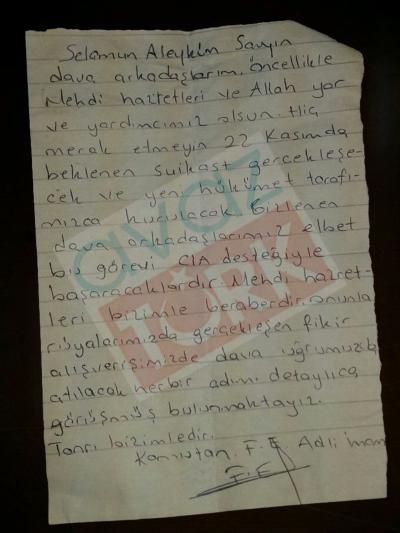 Selamun Aleyküm Sayın
dava arkadaşlarım, öncellikle
Mehdi hazretleri ve Allah yar
ve yardımcımız olsun. Hiç
merak etmeyin 22 Kasımda
beklenen suikast gerçekleşe-
cek ve yeni hükümet tarafı-
mızca kurulacak. Bizlenen
dava arkadaşlarımız elbet
bu görevi CIA desteğiyle
başaracaklardır. Mehdi hazret-
leri bizimle beraberdir. onunla
rüyalarımızda gerçekleşen fikir
alışverişimizde dava uğrumuzda
atılacak herbir adımı detaylıca
görüşmüş bulunmaktayız.
Tanrı bizimledir.
Komutan. F. E. Adli imam
F. E.
avaz
TÜRK